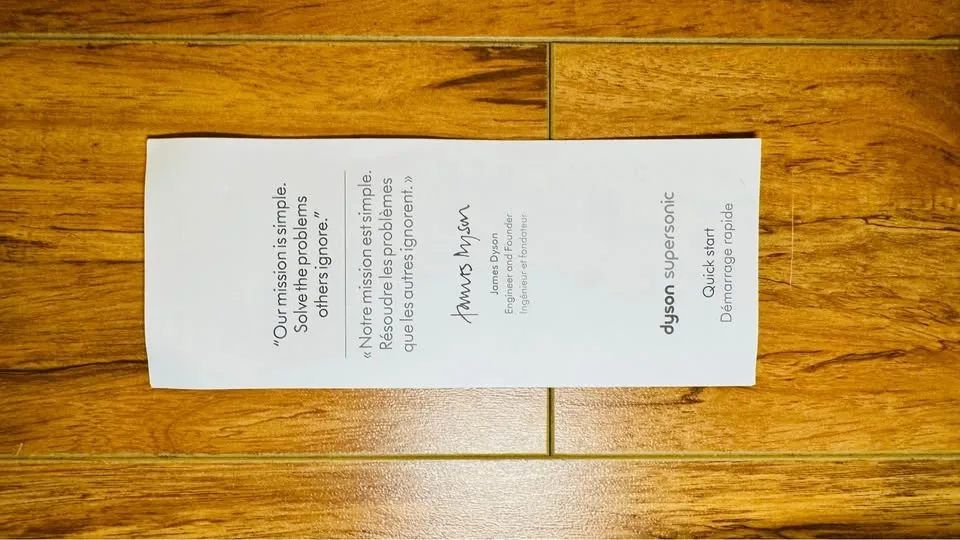 “Our mission is simple.
Solve the problems
others ignore.”
« Notre mission est simple.
Résoudre les problèmes
que les autres ignorent. »
James Dyson
James Dyson
Engineer and Founder
Ingénieur et fondateur
dyson supersonic
Quick start
Démarrage rapide